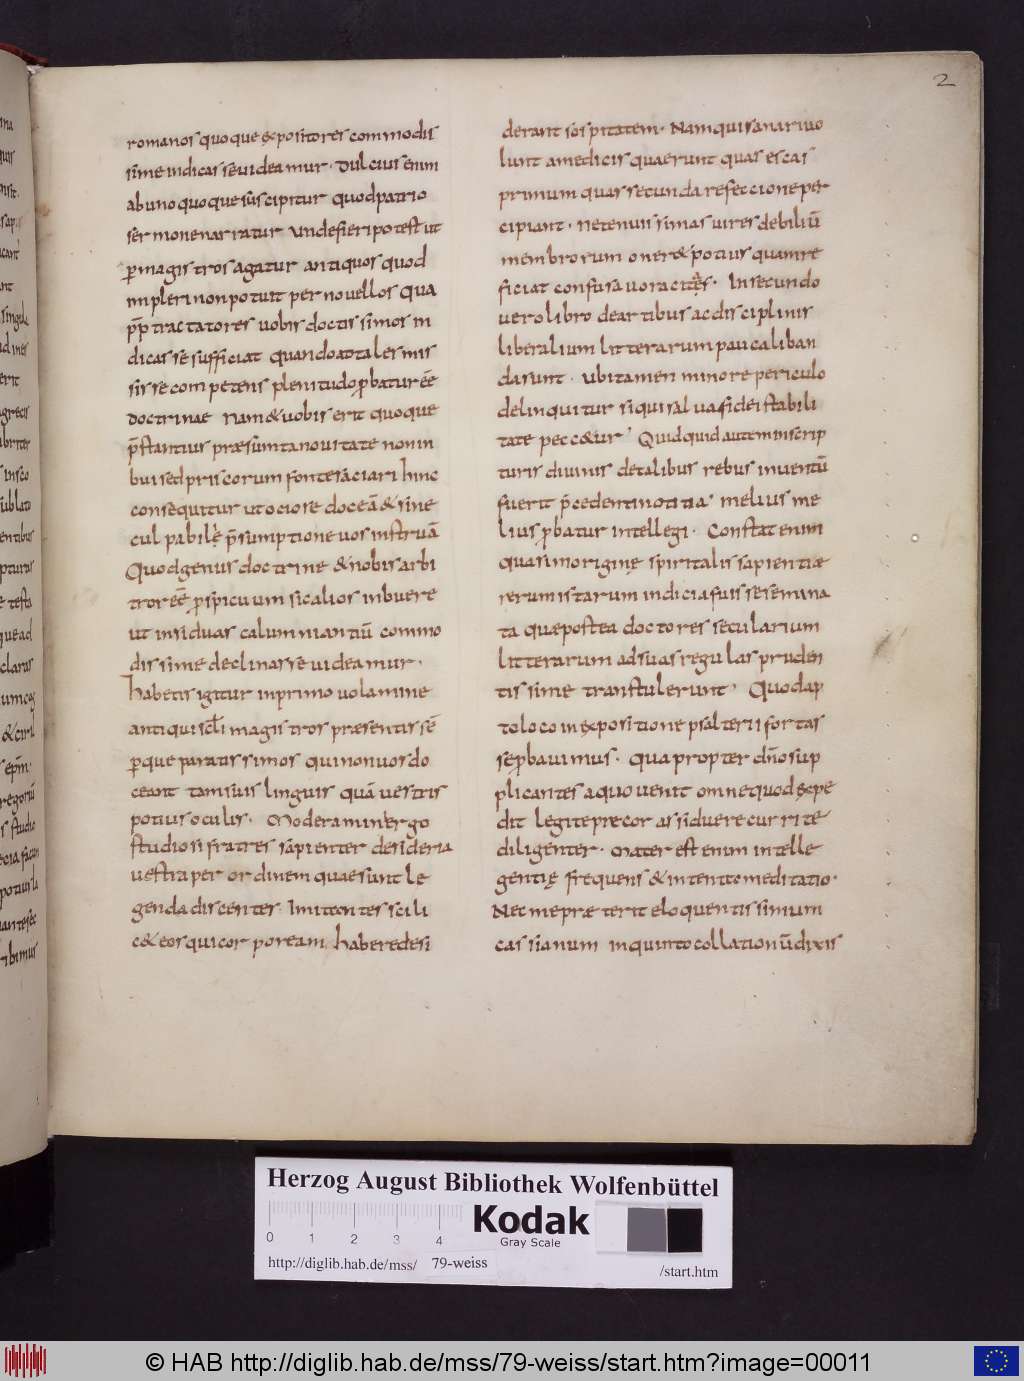 2
romanos quoque expositores commodis
sime indicasse videamur. Dulcius enim
ab uno quoque suscipitur quod patrio
sermone narratur unde fieri potest ut
p̄ magistros agatur antiquos quod
impleri non potuit per novellos qua
pp̄ tractatores vobis doctissimos in
dicasse sufficiat quando ad tales mis
sis se competens plenitudo p̱batur eē
doctrinae Nam & vobis erit quoque
p̄stantius praesumta novitate non in
bui sed priscorum fonte saciari hinc
consequitur ut ociose doceā & sine
culpabile p̄sumptione vos instruā
Quod genus doctrine & nobis arbi
tror eē p̱spicuum sic alios inbuere
ut insiduas calumniantiū commo
dissime declinasse videamur.
habetis igitur in primo volamine
antiqui scl̄i magistros praesentis sē
p̱que paratissimos qui non vos do
ceant tam suis linguis quā vestris
potius oculis. Moderamini ergo
studiosi fratres sapienter desideria
vestra per ordinem quae sunt le
genda discentes. Imitantes scili
c& eos qui corpoream habere desi
derant sospitatem. Nam qui sanari vo
lunt a medicis quaerunt quas escas
primum quas secunda refeccione per
cipiant. Ne tenuissimas vires debiliū
membrorum oner& potius quam re
ficiat confusa voracitęs. In secundo
vero libro de artibus ac disciplinis
liberalium litterarum pauca liban
da sunt. ubi tamen minore periculo
delinquitur si quis salva fidei stabili
tate pecc&ur Quidquid autem in scrip
turis divinis de talibus rebus inventū
fuerit p̄cedenti notitia melius me
lius p̱batur intellegi. Constat enim
quasi in originę spiritalis sapientiae
rerum istarum indicia fuisse semina
ta que postea doctores secularium
litterarum ad suas regulas pruden
tissime transtulerunt. Quod ap
to loco in expositione psalterii fortas
se p̱bavimus. Quapropter dn̄o sup
plicantes a quo venit omne quod expe
dit legite precor assidue recurrite
diligenter. Mater est enim intelle
gentię frequens & intentio meditatio.
Nec me praeterit eloquentissimum
cassianum in quinto collationū dixis
Herzog August Bibliothek Wolfenbüttel
0 1 2 3 4
Kodak
Gray Scale
http://diglib.hab.de/mss/ 79-weiss /start.htm
© HAB http://diglib.hab.de/mss/79-weiss/start.htm?image=00011